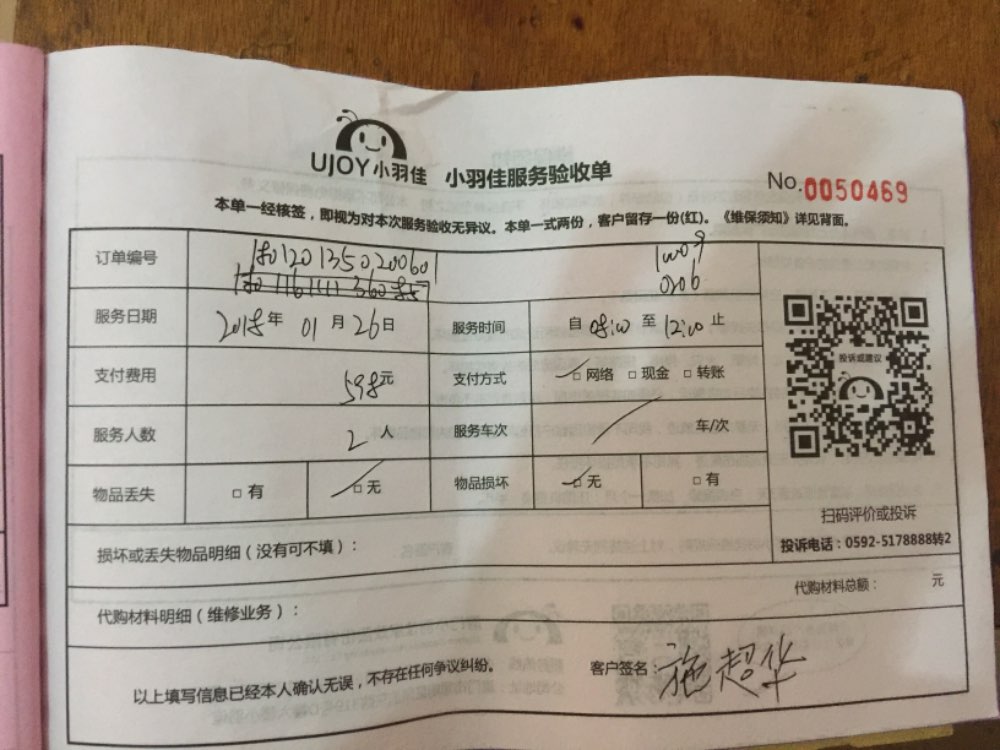 UJOY小羽佳 小羽佳服务验收单
No.0050469
本单一经核签，即视为对本次服务验收无异议。本单一式两份，客户留存一份(红)。《维保须知》详见背面。
订单编号
1009
0206
服务日期 2018年 01月26日 服务时间 自 08:00 至 12:00 止
支付费用 598元 支付方式 □网络 □现金 □转账
服务人数 2人 服务车次 / 车/次
物品丢失 □有 □无 物品损坏 □无 □有
投诉或建议
扫码评价或投诉
投诉电话：0592-5178888转2
损坏或丢失物品明细（没有可不填）：
代购材料明细（维修业务）：
代购材料总额： 元
以上填写信息已经本人确认无误，不存在任何争议纠纷。
客户签名：施超华